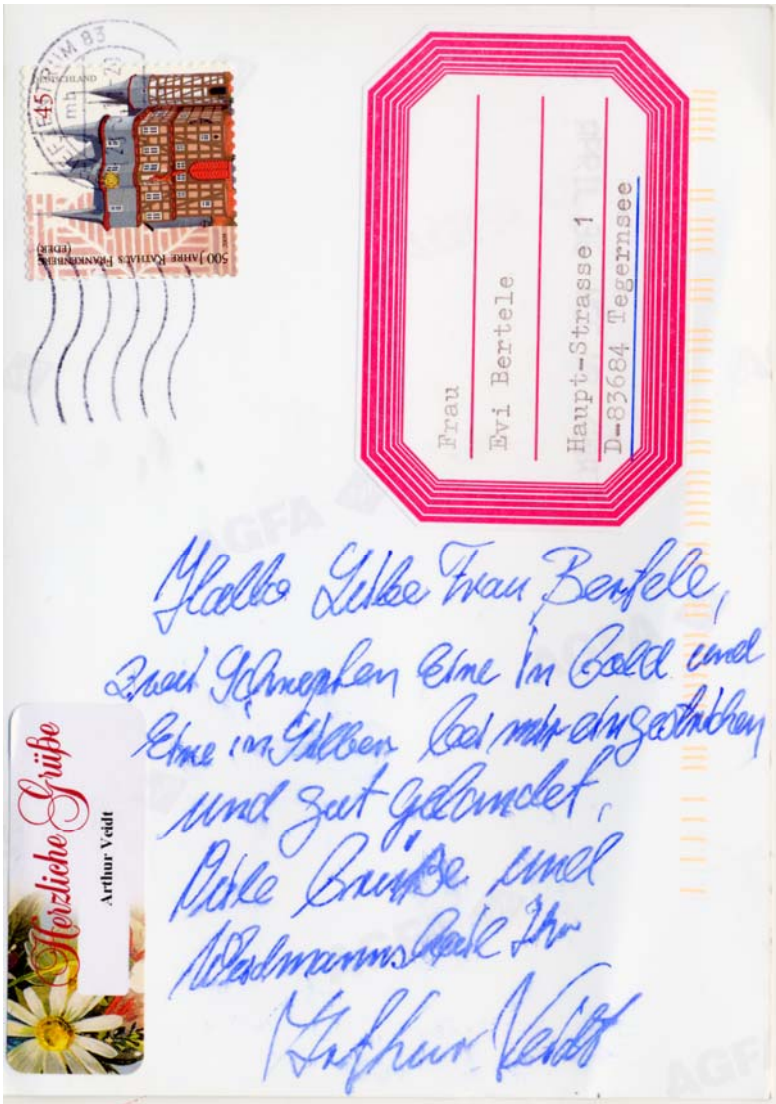 BRIEFZENTRUM 83
mb
DEUTSCHLAND
45
500 JAHRE RATHAUS FRANKENBERG
(EDER)
Frau
Evi Bertele
Haupt-Strasse 1
D-83684 Tegernsee
Hallo Liebe Frau Bertele,
zwei Schnepfen Eine in Gold und
Eine in Silber bei mir eingestrichen
und gut gelandet,
Viele Grüße und
Weidmannsheil Ihr
Arthur Veidt
Herzliche Grüße
Arthur Veidt
AGFA
AGFA